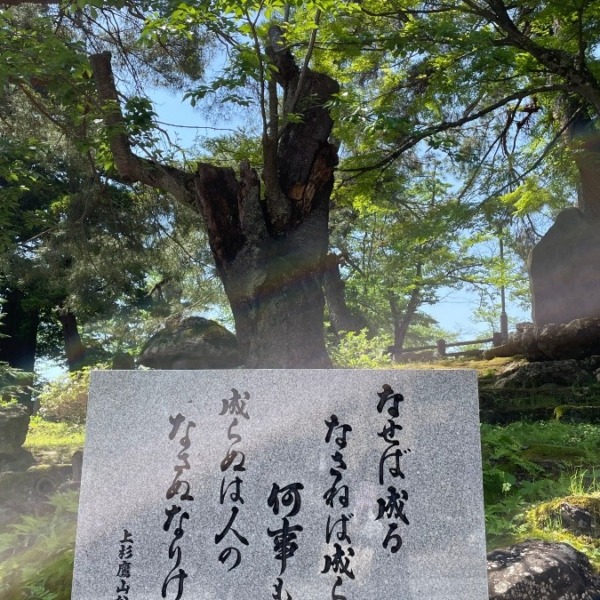 なせば成る
なさねば成ら
何事も
成らぬは人の
なさぬなりけ
上杉鷹山